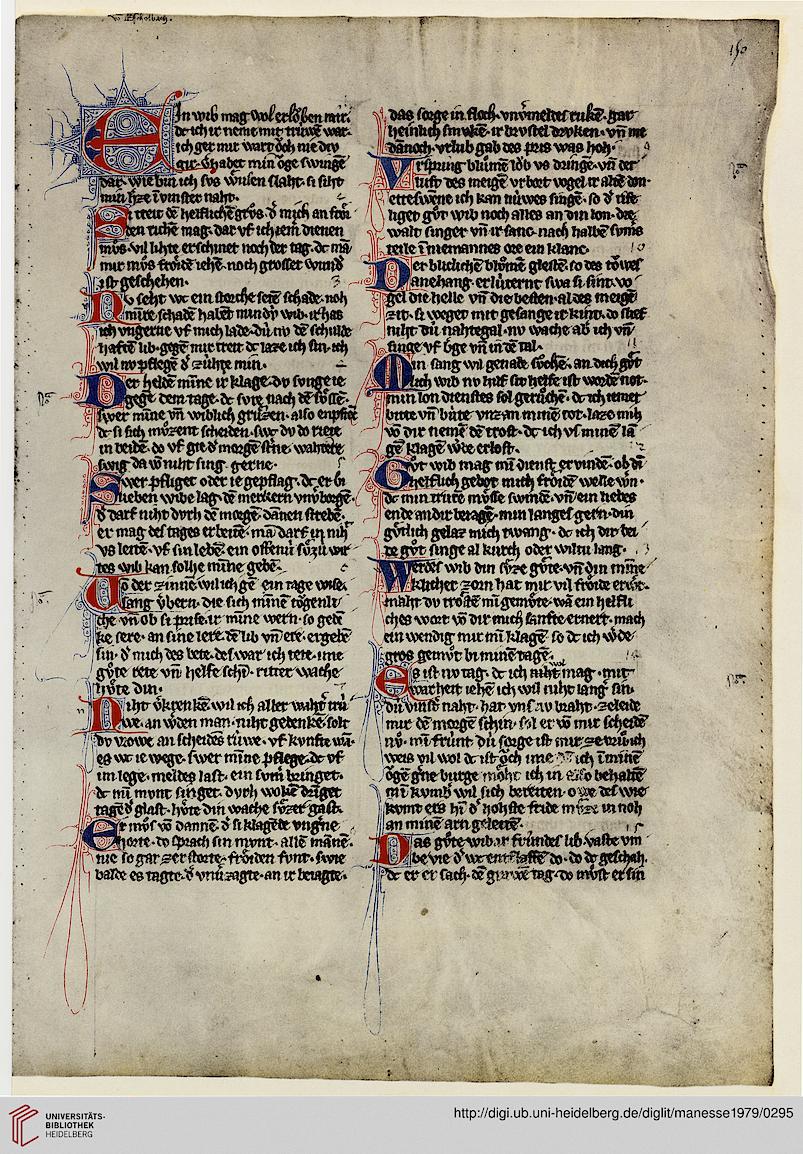 vō Eschelbach.
150
Ein wib mag wol erlŏben mir.
dc ich ir neme mit trúwe war.
ich ger mir wart ŏch nie dú
gir. habet min ŏge swingē
dar. wie bin ich sus slaht. si siht
min h'ze vinster naht.
den riche mag. dar vf ich iem dienen
mv̊s. vil lihte erschinet noch der tag. dc mā
mir mv̊s frŏide iehē. noch grosser
ist geschehen.
seht wc ein storche sete schade. noh
mīre schadē habēt min dú wib. ir has
ich vngerne vf mich lade. dú nv dē schulde
haftē lib. gegē mir treit dc laze ich sin. ich
wil nv pflege zúhte min.
Der helde mīne ir klage. dv svnge ie
gegē dem tage. dc svre nach dē sv̊ssē.
swer mīne vn̄ wiblich grv̊zen. also enpfiēc
dc si sich mv̊zent scheiden. swc dv do riete
in beidē. do vf gie d' morgē st'ne. wahtere
swig da vō niht sing gerne.
Swer pfliget oder ie gepflag. dc er bi
lieben wibe lag. dē merkern vnv'borgē.
d' darf niht dvrh dē morgē. dānen strebē.
er mag des tages erbeitē. mā darf in niht
vs leitē. vf sin lebē. ein offenú svͤzú wir
tes wib kan solhe mīne gebē.
Vō der zinnē wil ich gē in tage wise.
sang v'bern. die sich mīnē tŏgenli
che vn̄ ob si prise ir mīne wern. so gedē
ke sere. an sine lere. dē lib vn̄ ere. ergebē
sin. d' mich des bete. deswar ich tete. ime
gv̊te rete vn̄ helfe schī. ritter wache
hv̊te din.
Niht v'krenkē wil ich aller wahtˀ trú
we. an w'den man. niht gedenke solt
dv vrowe an scheides rúwe. vf kvnfte wā.
es wc ie wege. swer mīne pflege. dc vf
im lege. meldes last. ein svm' bringet.
dc mī mvnt singet. dvrh wolkē dringet
tagēd' glast. hv̊te din wache sv̊zer gast.
Er mv̊s vō dannē. d' si klagēde vngˀne
horte. do sprach sin mvnt. allē mānē.
nie so gar zerstorte. frŏiden fvnt. swie
balde es tagte. d' vnuˀzagte. an ir beiagte.
das sorge in floch. vnv'meldes rukē. gar
heinlich smvkē. ir brvstel drvken. vn̄ me
dānoch. vrlub gab des pris was hoh.
Vrsprung blv̊mē lŏb vs dringē. vn̄ der
luft des meigē vrbort vogel ir altē don.
etteswene ich kan núwes singē. so d' rife
liget gv̊t wib noch alles an din lon. dee
walt singer vn̄ ir sanc. nach halbē svm's
teile ī niemannes ore ein klanc.
Der blichchē blv̊mē glestē. so des tŏwes
anehang. erlúternt swa si sint. vo
gel die helle vn̄ die besten. al des meigē
zit. si weget mit gesange ir kint. do slief
niht dú nahtegal. nv wache ab ich vn̄
singe vf b'ge vn̄ in dē tal.
Min sang wil genade sv̊chē. an dich gv̊t
lich wib nv hilf sit helfe ist wordē not.
min lon dienstes sol gerv̊chē. dc ich iemer
bitte vn̄ biute vnz an minē tot. laze mih
vō dir nemē dē trost. dc ich vs minē lā
gē klagē w'de erlost.
Gv̊t wib mag mī dienst ervindē. ob dī
helflich gebot mich frŏidē welle w'n.
dc min truren mv̊sse swindē. vn̄ ein liebes
ende an dir beiagē. min langes gern. din
gv̊tlich gelaz mich twang. dc ich dir bei
de gv̊t singe al kurch oder wiltu lang.
Werdes wib din sv̊ze gv̊te. vn̄ din mīne
klicher zorn hat mir vil frŏide erwˀt.
maht dv trŏstē mī gemv̊te. wā ein helfli
ches wort vō dir mich sanfte ernert. mach
ein wendig mir mī klagē. so dc ich w'de
gros gemv̊t bi minē tagē.
Es ist nv tag. dc ich wol mag. mit
warheit iehē ich wil niht lang' sin.
dú vinst' naht. hat vns nv braht. ze leide
mir dē morgē schin. sol er vō mir scheidē
nv. mī frúnt dú sorge ist mir ze vrv̊. ich
weis vil wol dc ist ŏch ime. dē ich ī minē
ŏgē g'ne burge. mŏht ich in also behaltē
mī kvmb' wil sich breiten. owe des wie
kvmt ers hī d' hohste fride mv̊ze in noh
an minē arn geleitē.
Das gv̊te wib ir frúndes lib. vaste vm
bevie d' wc entslaffē do. do dc geschah.
dc er er sach. dē grawē tag. do mv̊st er sin
UNIVERSITÄTS-
BIBLIOTHEK
HEIDELBERG
http://digi.ub.uni-heidelberg.de/diglit/manesse1979/0295